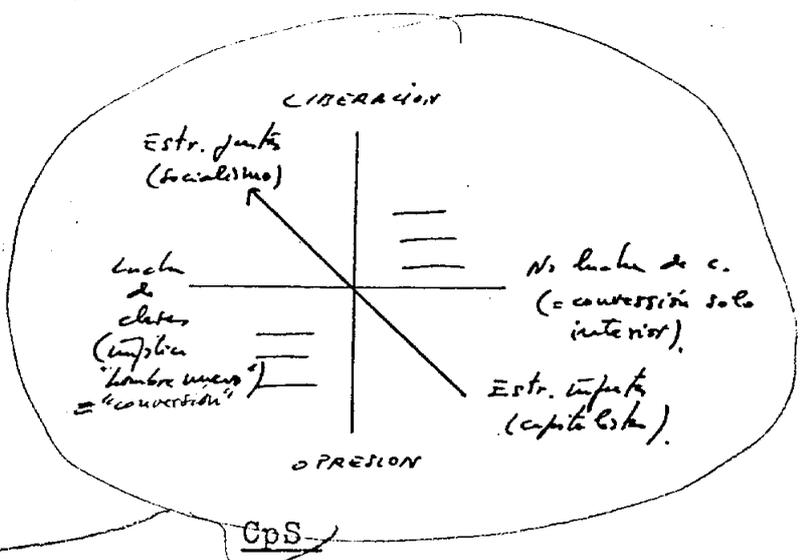 LIBERACION
Estr. justas
(socialismo)
Lucha
de
clases
(implica
"hombre nuevo")
= "conversión"
No lucha de c.
(= conversión solo
interior).
Estr. injustas
(capitalistas).
OPRESION
CpS